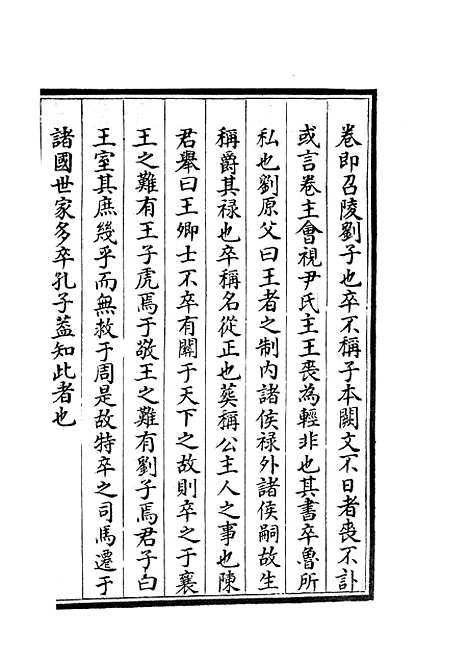 卷即召陵劉子也卒不稱子本闕文不日者喪不訃
或言卷主會視尹氏主王喪為輕非也其書卒魯所
私也劉原父曰王者之制内諸侯禄外諸侯嗣故生
稱爵其禄也卒稱名從正也葬稱公主人之事也陳
君舉曰王卿士不卒有關于天下之故則卒之于襄
王之難有王子虎焉于敬王之難有劉子焉君子曰
王室其庶幾乎而無救于周是故特卒之司馬遷于
諸國世家多卒孔子葢知此者也